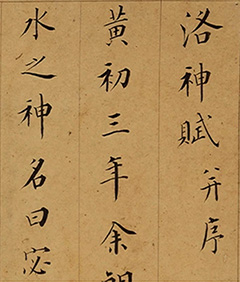 洛神賦并序
黃初三年余朝
水之神名曰宓